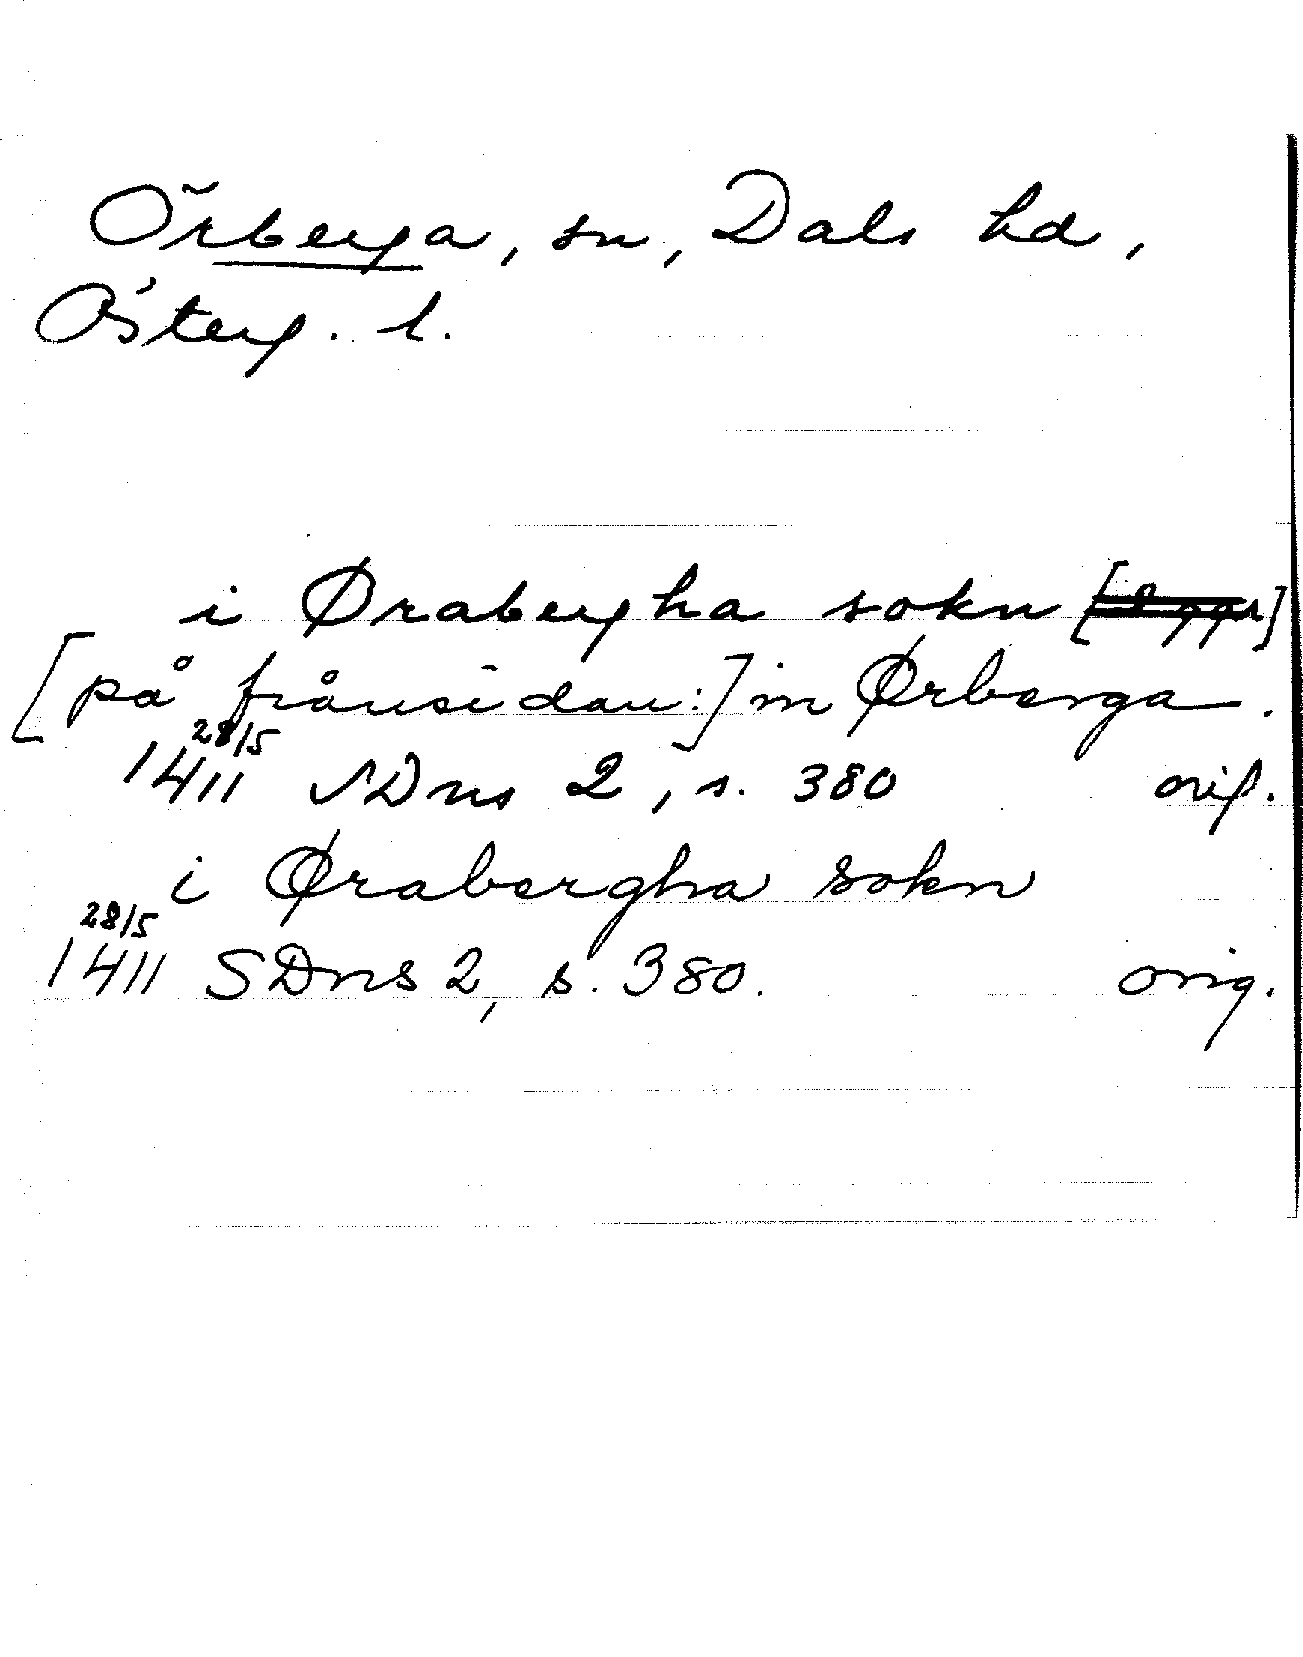 Örberga, sn, Dals hd,
Österg. l.
i Ørabergha sokn
[på frånsidan:] in Ørberga.
28/5
1411 SDns 2, s. 380 orig.
i Ørabergha sokn
28/5
1411 SDns 2, s. 380. orig.